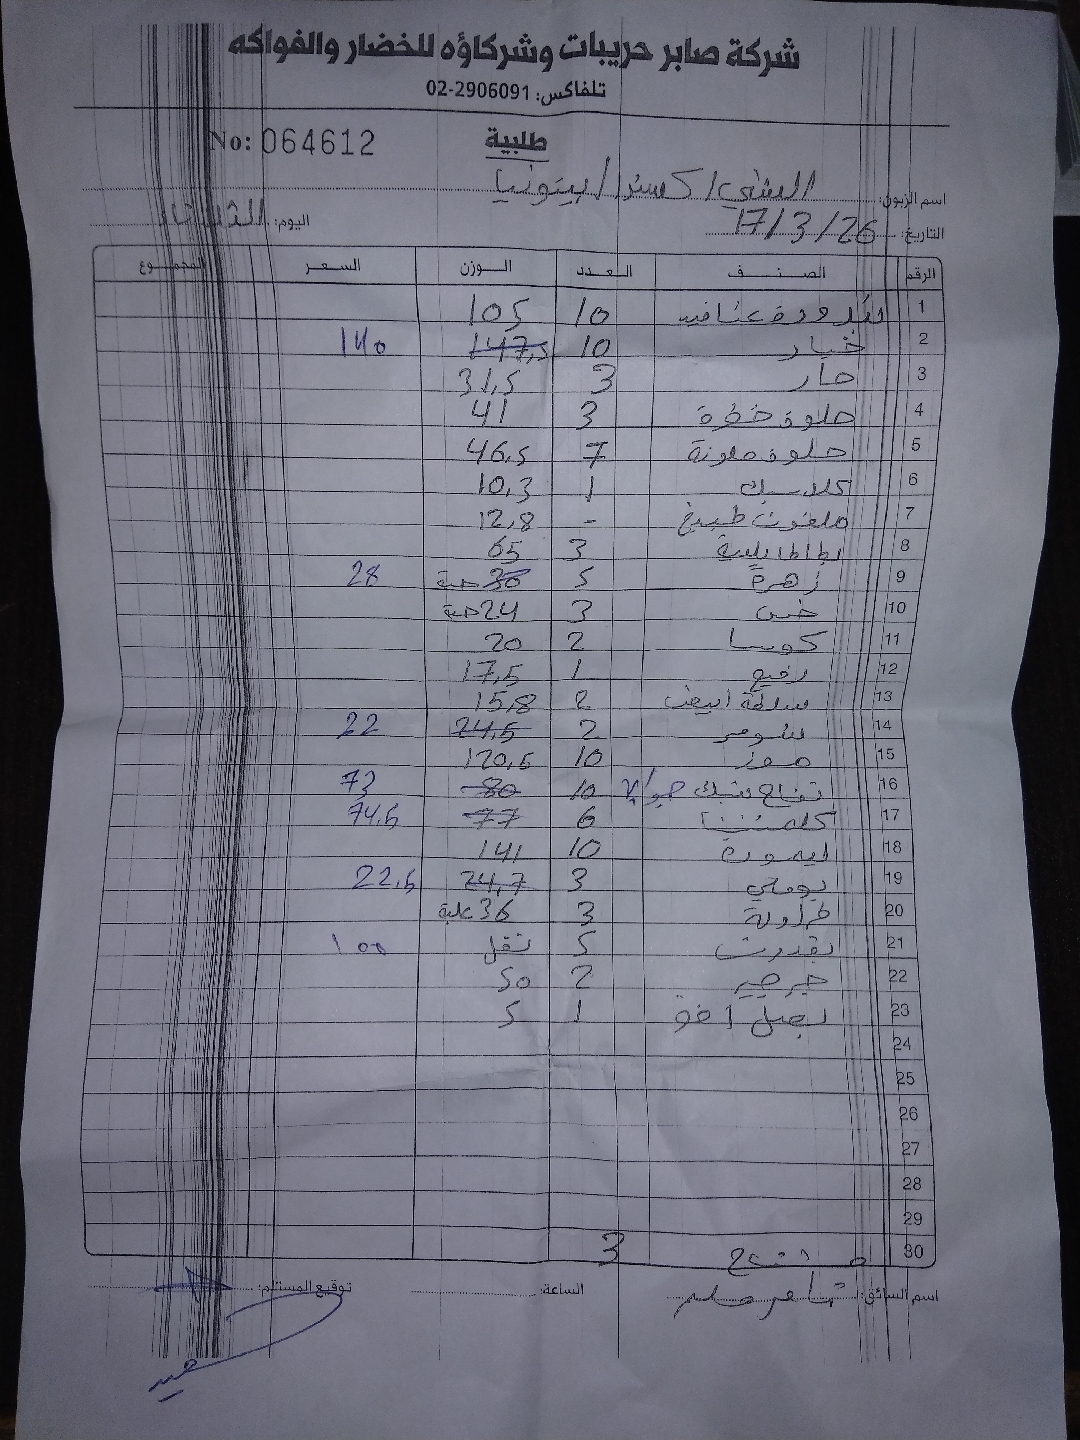 شركة صابر حريبات وشركاؤه للخضار والفواكه
تلفاكس: 02-2906091
طلبية
No: 064612
اسم الزبون: الشني / اكسترا / بيتونيا
التاريخ: 17/3/26 اليوم: الثلاثاء
الرقم الصنف العدد الوزن السعر المجموع
1 بندورة عناقيد 10 105
2 خيار 10 147,5 140
3 حار 3 31,5
4 حلوة خضرة 3 41
5 حلوة ملونة 7 46,5
6 كلاسيك 1 10,3
7 ملفوف طبيخ - 12,8
8 بطاطا 3 65
9 زهرة 5 30 حبة 28
10 خس 3 24 حبة
11 كوسا 2 20
12 رفيع 1 17,5
13 سلطة ابيض 2 15,8
14 شومر 2 24,5 22
15 موز 10 120,5
16 تفاح بنك 10 80 73
17 كلمنتينا 6 77 74,5
18 ليمون 10 141
19 بوملي 3 24,7 22,5
20 فراولة 3 36 علبة
21 بقدونس 5 نقل 100
22 جرجير 2 50
23 بصل اخضر 1 5
24
25
26
27
28
29
30 3
اسم السائق: الساعة: توقيع المستلم: